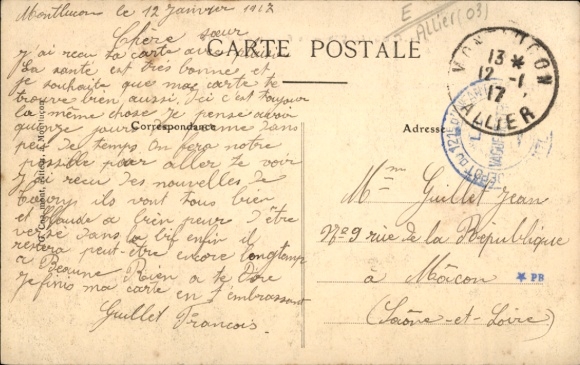 Montlucon le 12 Janvier 1917
Chère sœur
j'ai recu ta carte avec plaisir
La santé est très bonne et
je souhaite que ma carte te
trouve bien aussi. Ici c'est toujour
la même chose Je pense avoir
quinze jours de ferme dans
peu de temps On fera notre
possible pour aller te voir
j'ai recu des nouvelles de
ils vont tous bien
Claude a peur d'être
versé dans la bif enfin il
restera peut-être encore longtemp
a Beaune Rien a te dire
Je finis ma carte en t'embrassant
Guillet Francois
E
Allier (03)
CARTE POSTALE
Correspondance
Adresse
MONTLUCON
13 *
12 -1
17
ALLIER
DEPOT DU 121E
VAGUEMESTRE
Mme Guillet Jean
No 9 rue de la République
à Mâcon
(Saône-et-Loire)
* PB
édit. Montluçon